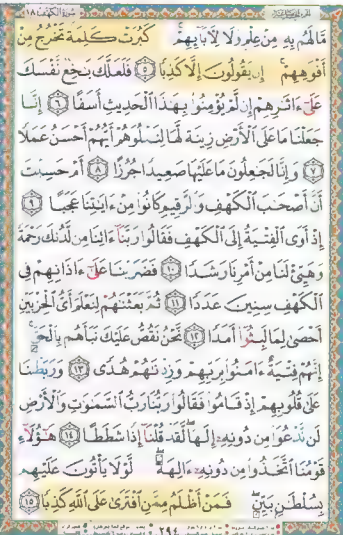 سورة الكهف ١٨
مَّا لَهُم بِهِۦ مِنْ عِلْمٍ وَلَا لِـَٔابَآئِهِمْ ۚ كَبُرَتْ كَلِمَةً تَخْرُجُ مِنْ
أَفْوَٰهِهِمْ ۚ إِن يَقُولُونَ إِلَّا كَذِبًا ۝٥ فَلَعَلَّكَ بَـٰخِعٌ نَّفْسَكَ
عَلَىٰٓ ءَاثَـٰرِهِمْ إِن لَّمْ يُؤْمِنُوا۟ بِهَـٰذَا ٱلْحَدِيثِ أَسَفًا ۝٦ إِنَّا
جَعَلْنَا مَا عَلَى ٱلْأَرْضِ زِينَةً لَّهَا لِنَبْلُوَهُمْ أَيُّهُمْ أَحْسَنُ عَمَلًا
۝٧ وَإِنَّا لَجَـٰعِلُونَ مَا عَلَيْهَا صَعِيدًا جُرُزًا ۝٨ أَمْ حَسِبْتَ
أَنَّ أَصْحَـٰبَ ٱلْكَهْفِ وَٱلرَّقِيمِ كَانُوا۟ مِنْ ءَايَـٰتِنَا عَجَبًا ۝٩
إِذْ أَوَى ٱلْفِتْيَةُ إِلَى ٱلْكَهْفِ فَقَالُوا۟ رَبَّنَآ ءَاتِنَا مِن لَّدُنكَ رَحْمَةً
وَهَيِّئْ لَنَا مِنْ أَمْرِنَا رَشَدًا ۝١٠ فَضَرَبْنَا عَلَىٰٓ ءَاذَانِهِمْ فِى
ٱلْكَهْفِ سِنِينَ عَدَدًا ۝١١ ثُمَّ بَعَثْنَـٰهُمْ لِنَعْلَمَ أَىُّ ٱلْحِزْبَيْنِ
أَحْصَىٰ لِمَا لَبِثُوٓا۟ أَمَدًا ۝١٢ نَّحْنُ نَقُصُّ عَلَيْكَ نَبَأَهُم بِٱلْحَقِّ ۚ
إِنَّهُمْ فِتْيَةٌ ءَامَنُوا۟ بِرَبِّهِمْ وَزِدْنَـٰهُمْ هُدًى ۝١٣ وَرَبَطْنَا
عَلَىٰ قُلُوبِهِمْ إِذْ قَامُوا۟ فَقَالُوا۟ رَبُّنَا رَبُّ ٱلسَّمَـٰوَٰتِ وَٱلْأَرْضِ
لَن نَّدْعُوَا۟ مِن دُونِهِۦٓ إِلَـٰهًا ۖ لَّقَدْ قُلْنَآ إِذًا شَطَطًا ۝١٤ هَـٰٓؤُلَآءِ
قَوْمُنَا ٱتَّخَذُوا۟ مِن دُونِهِۦٓ ءَالِهَةً ۖ لَّوْلَا يَأْتُونَ عَلَيْهِم
بِسُلْطَـٰنٍۭ بَيِّنٍ ۖ فَمَنْ أَظْلَمُ مِمَّنِ ٱفْتَرَىٰ عَلَى ٱللَّهِ كَذِبًا ۝١٥
٢٩٤